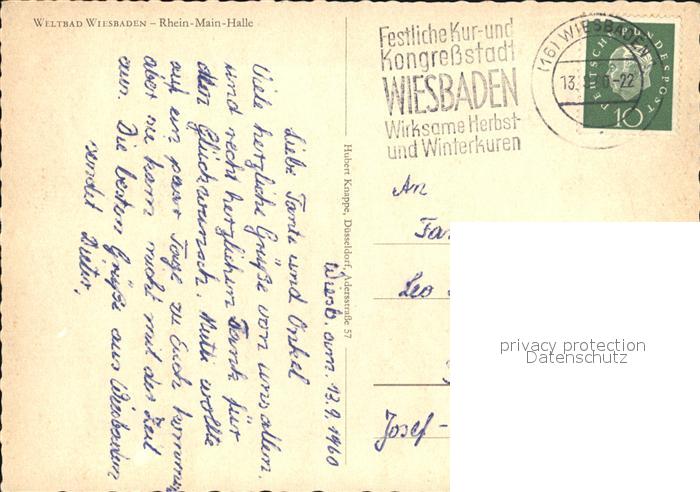 WELTBAD WIESBADEN – Rhein-Main-Halle
Wiesb. am. 13.9.1960
Liebe Tante und Onkel
Viele herzliche Grüße von uns allen.
und recht herzlichen Dank für
den Glückwunsch. Mutti wollte
auf ein paar Tage zu Euch kommen
aber sie kam nicht mit der Zeit
aus. Die besten Grüße aus Wiesbaden
sendet Dieter.
Hubert Knappe, Düsseldorf, Adersstraße 57
Festliche Kur- und
Kongreßstadt
WIESBADEN
Wirksame Herbst-
und Winterkuren
(16) WIESBADEN
-22
DEUTSCHE BUNDESPOST
10
An
Fa
Leo
Josef-
privacy protection
Datenschutz